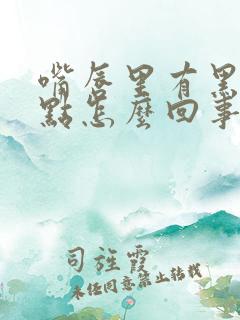 嘴唇里有黑
點怎麼回事
司旌霞
未经同意禁止转载